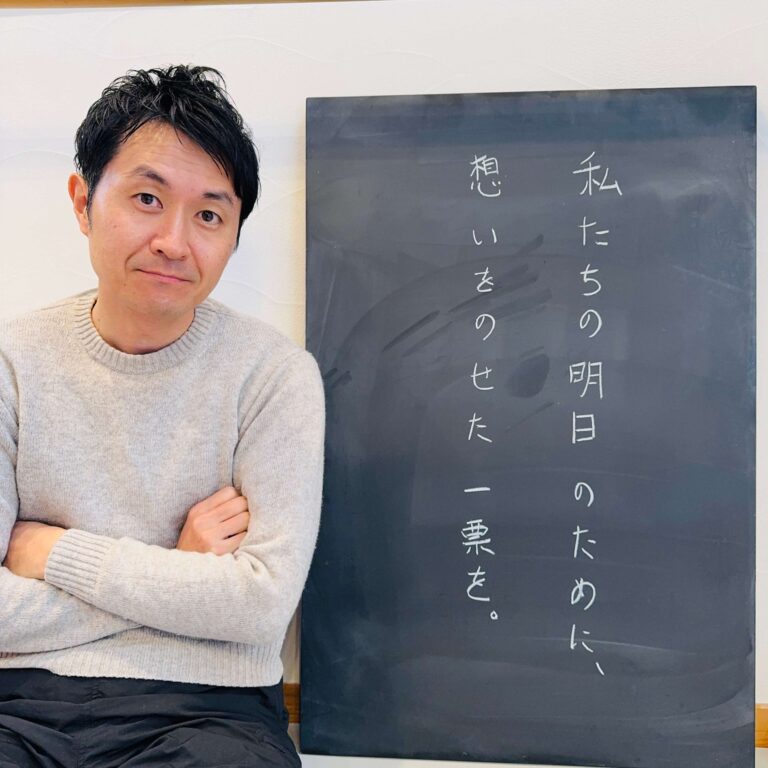 私たちの明日のために、
想いをのせた一票を。